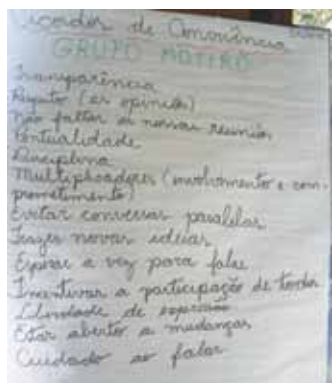 de Convivência
GRUPO
Transparência
Respeito (as opiniões)
não faltar as nossas reuniões
Pontualidade
Disciplina
Multiplicadores (envolvimento e com
prometimento)
Evitar conversas paralelas
Trazer novas idéias
Esperar a vez para falar
Incentivar a participação de todos
Liberdade de expressão
Estar aberto a mudanças
Cuidado ao falar